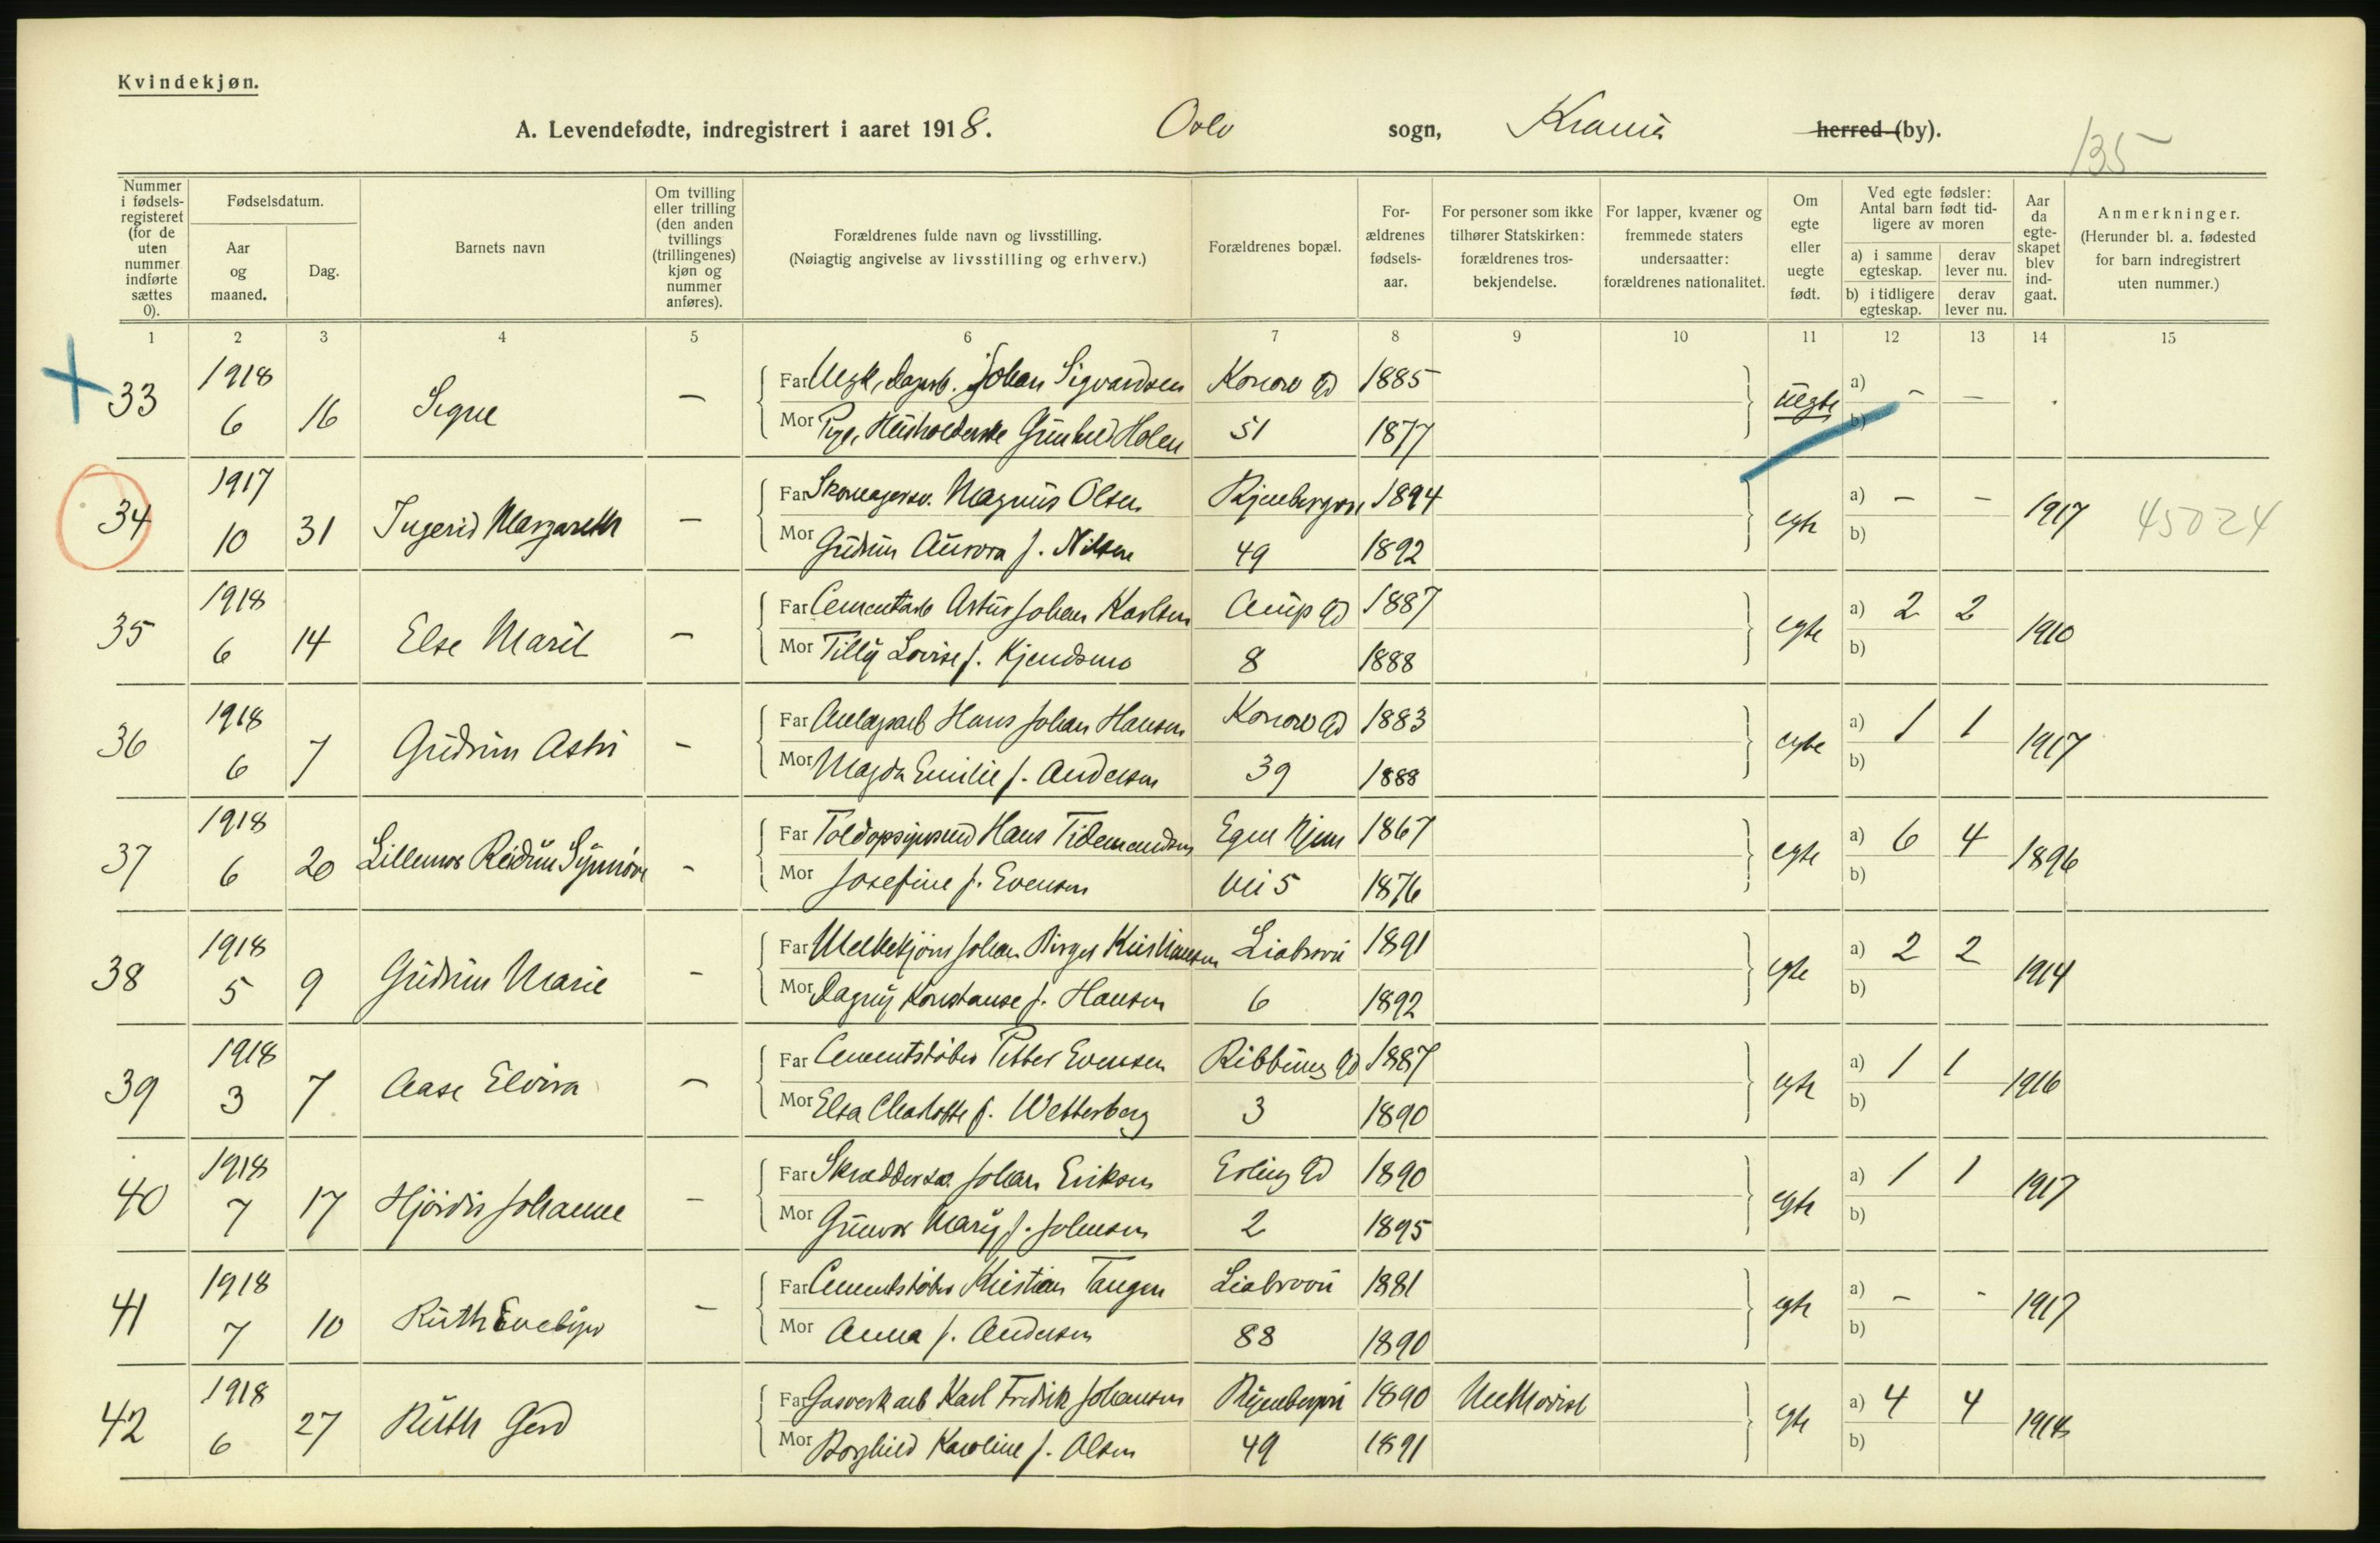 Kvindekjøn.
A. Levendefødte, indregistrert i aaret 1918. Oslo sogn, Krania herred (by).
135
Nummer i fødselsregisteret (for de uten nummer indførte sættes 0).
Fødselsdatum.
Aar og maaned.
Dag.
Barnets navn
Om tvilling eller trilling (den anden tvillings (trillingenes) kjøn og nummer anføres).
Forældrenes fulde navn og livsstilling.
(Nøiagtig angivelse av livsstilling og erhverv.)
Forældrenes bopæl.
Forældrenes fødselsaar.
For personer som ikke tilhører Statskirken: forældrenes trosbekjendelse.
For lapper, kvæner og fremmede staters undersaatter: forældrenes nationalitet.
Om egte eller uegte født.
Ved egte fødsler: Antal barn født tidligere av moren
a) i samme egteskap. derav lever nu.
b) i tidligere egteskap. derav lever nu.
Aar da egteskapet blev indgaat.
Anmerkninger.
(Herunder bl. a. fødested for barn indregistrert uten nummer.)
1 2 3 4 5 6 7 8 9 10 11 12 13 14 15
33 1918 6 16 Signe — Far Ugk, Dagarb. Johan Sigvardsen Konow Gd 1885 uegte a) - —
Mor Pige, Husholderske Gunhild Holen 51 1877 b)
34 1917 10 31 Ingerid Margareth — Far Skomagersv. Magnus Olsen 1894 egte a) — — 1917 45024
Mor Gudrun Aurora f. Nilsen 49 1892 b)
35 1918 6 14 Else Marit — Far Cementarb Artur Johan Karlsen Arup Gd 1887 egte a) 2 2 1910
Mor Tilly Lovise f. Kjendsmo 8 1888 b)
36 1918 6 7 Gudrun Astri - Far Anlægsarb Hans Johan Hansen Konow Gd 1883 egte a) 1 1 1917
Mor Magda Emilie f. Andersen 39 1888 b)
37 1918 6 20 Lillemor Reidun Synnøve - Far Toldopsynsmd Hans Tidemandsen Egne Hjem 1867 egte a) 6 4 1896
Mor Josefine f. Evensen vei 5 1876 b)
38 1918 5 9 Gudrun Marie - Far Melkekjörer Johan Birger Kristiansen Liabrovei 1891 egte a) 2 2 1914
Mor Dagny Konstanse f. Hansen 6 1892 b)
39 1918 3 7 Aase Elvira — Far Cementstøber Petter Evensen Ribbung Gd 1887 egte a) 1 1 1916
Mor Elsa Charlotte f. Wetterberg 3 1890 b)
40 1918 7 17 Hjördis Johanne - Far Skræddersv. Johan Eriksen Erling Gd 1890 egte a) 1 1 1917
Mor Gunvor Mary f. Johnsen 2 1895 b)
41 1918 7 10 Ruth Evelyn - Far Cementstøber Kristian Tangen Liabrovei 1881 egte a) - - 1917
Mor Anna f. Andersen 88 1890 b)
42 1918 6 27 Ruth Gerd Far Gasverkarb Karl Fredrik Johansen 1890 Methodist egte a) 4 4
Mor Borghild Karoline f. Olsen 49 1891 b)